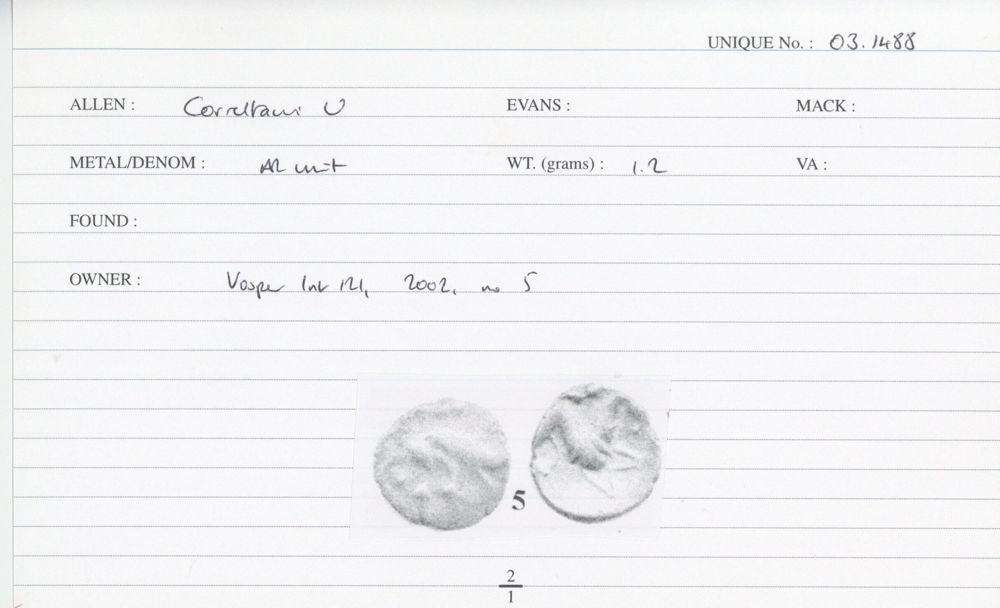 UNIQUE No. : 03.1488
ALLEN : Correltauvi U EVANS : MACK :
METAL/DENOM : AR unit WT. (grams) : 1.2 VA :
FOUND :
OWNER : Vosper 121, 2002, no 5
5
2
1